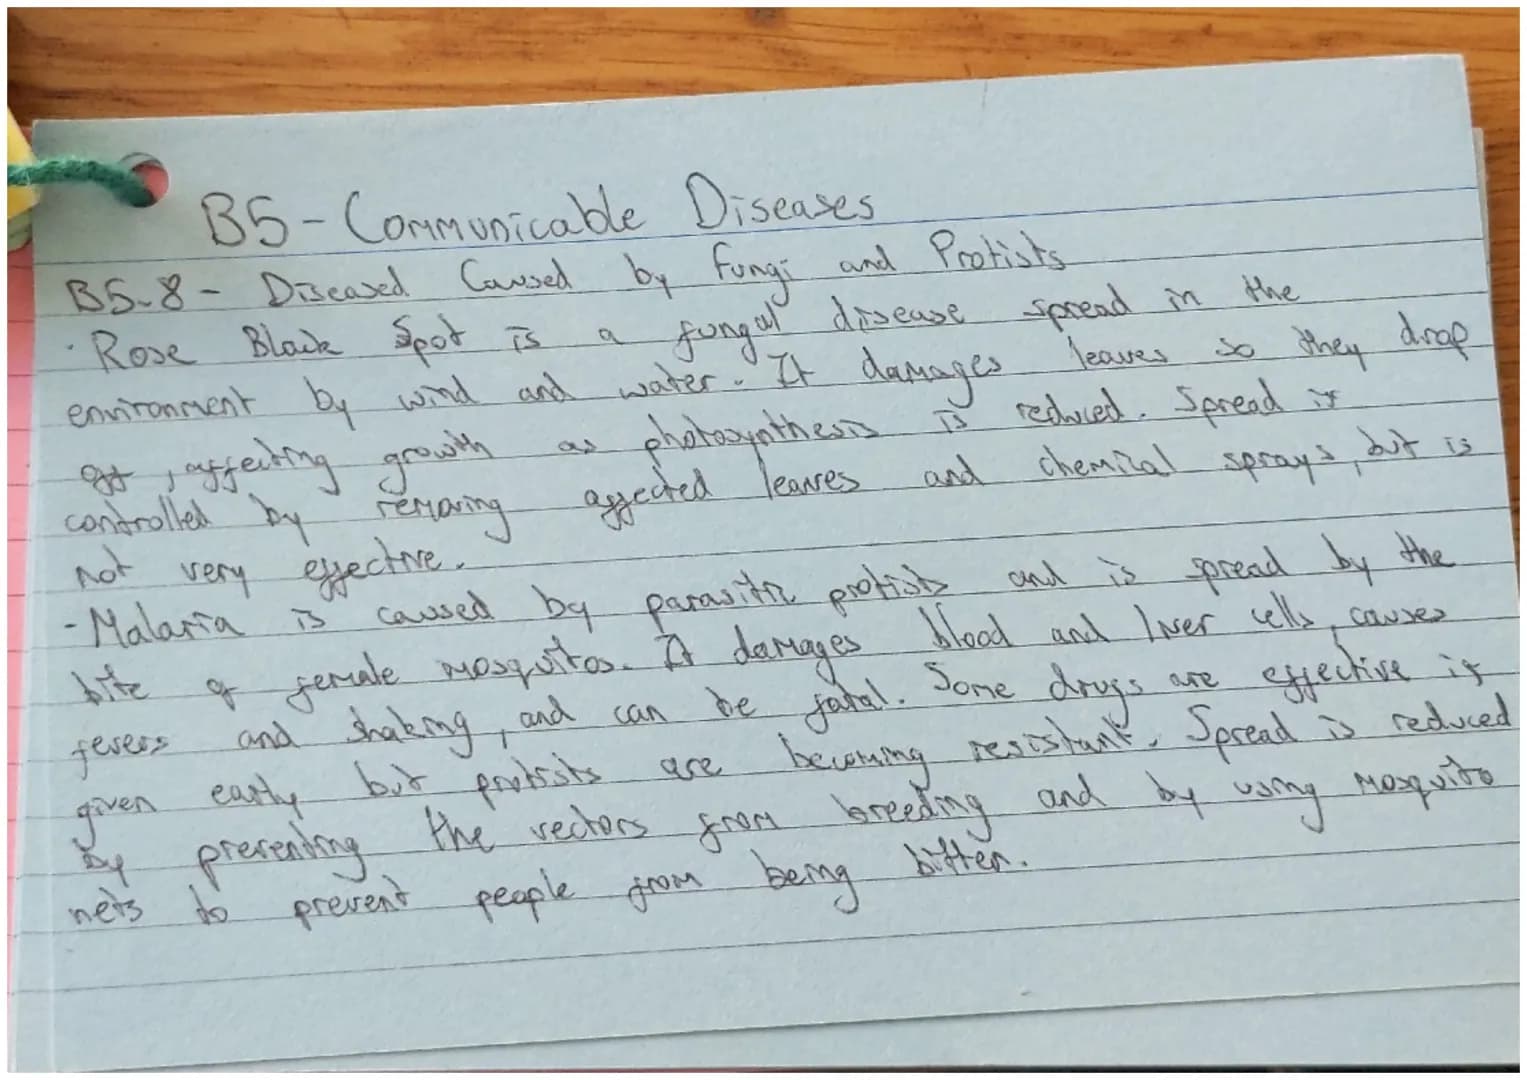 B5 - Communicable Diseases
B5.8 - Diseased Caused by Fungi and Protists
· Rose Black Spot is a fungal disease spread in the
environment by wind and water. It damages leaves so they drop
off, affecting growth as photosynthesis is reduced. Spread is
controlled by removing affected leaves and chemical sprays, but is
not very effective.
- Malaria is caused by parasitic protists and is spread by the
bite of female mosquitos. It damages blood and liver cells, causes
fevers and shaking, and can be fatal. Some drugs are effective if
given early but protists are becoming resistant. Spread is reduced
by preventing the vectors from breeding and by using mosquito
nets to prevent people from being bitten.